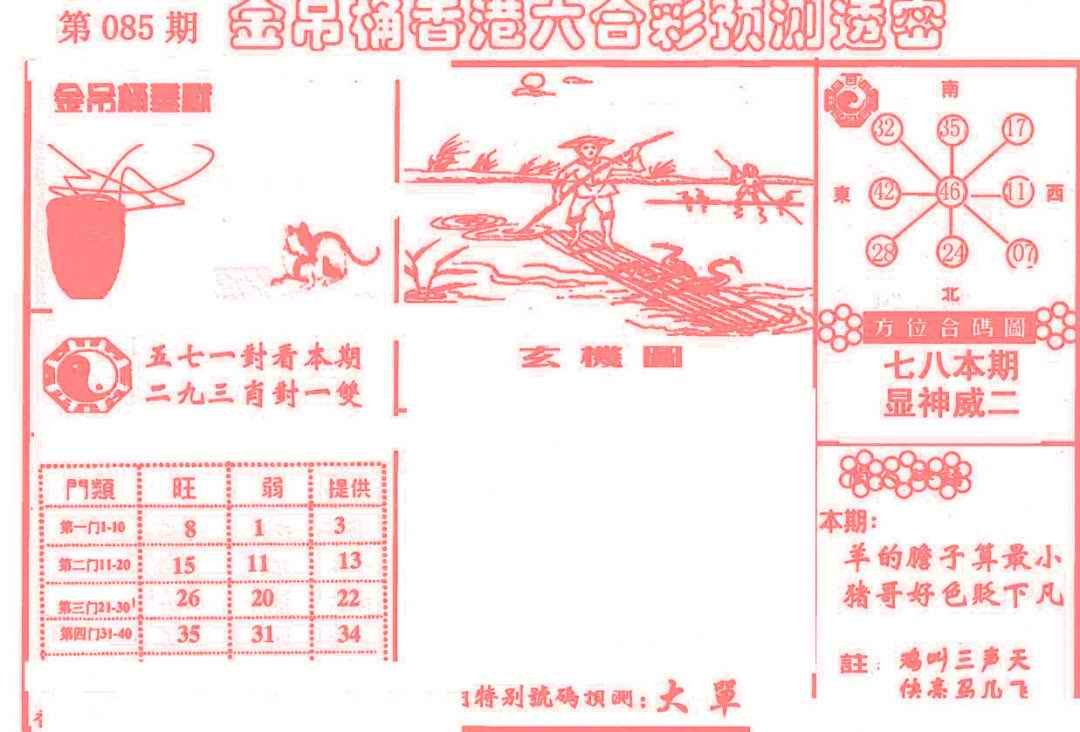 第 085 期 金吊桶香港六合彩预测透密
金吊桶墨獻
五七一對看本期
二九三肖對一雙
門類 旺 弱 提供
第一门1-10 8 1 3
第二门11-20 15 11 13
第三门21-30 26 20 22
第四门31-40 35 31 34
玄機圖
特别號碼預測：大單
南
32 35 17
東 42 46 11 西
28 24 07
北
方位合碼圖
七八本期
显神威二
本期：
羊的膽子算最小
猪哥好色贬下凡
註：鸡叫三声天
快亮马儿飞